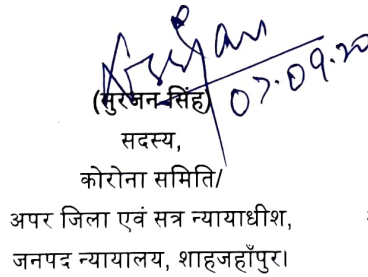 07.09.20
(सुरजन सिंह)
सदस्य,
कोरोना समिति/
अपर जिला एवं सत्र न्यायाधीश,
जनपद न्यायालय, शाहजहाँपुर।